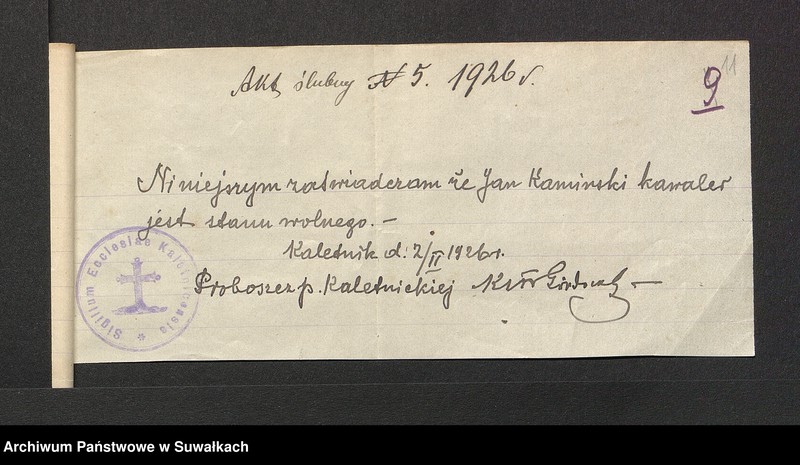 Akt ślubny N 5. 1926 r.
11
9
Niniejszym zaświadczam że Jan Kamiński kawaler
jest stanu wolnego. —
Kaletnik d. 2/II 1926 r.
Proboszcz p. Kaletnickiej
Sigillum Ecclesiae
Archiwum Państwowe w Suwałkach